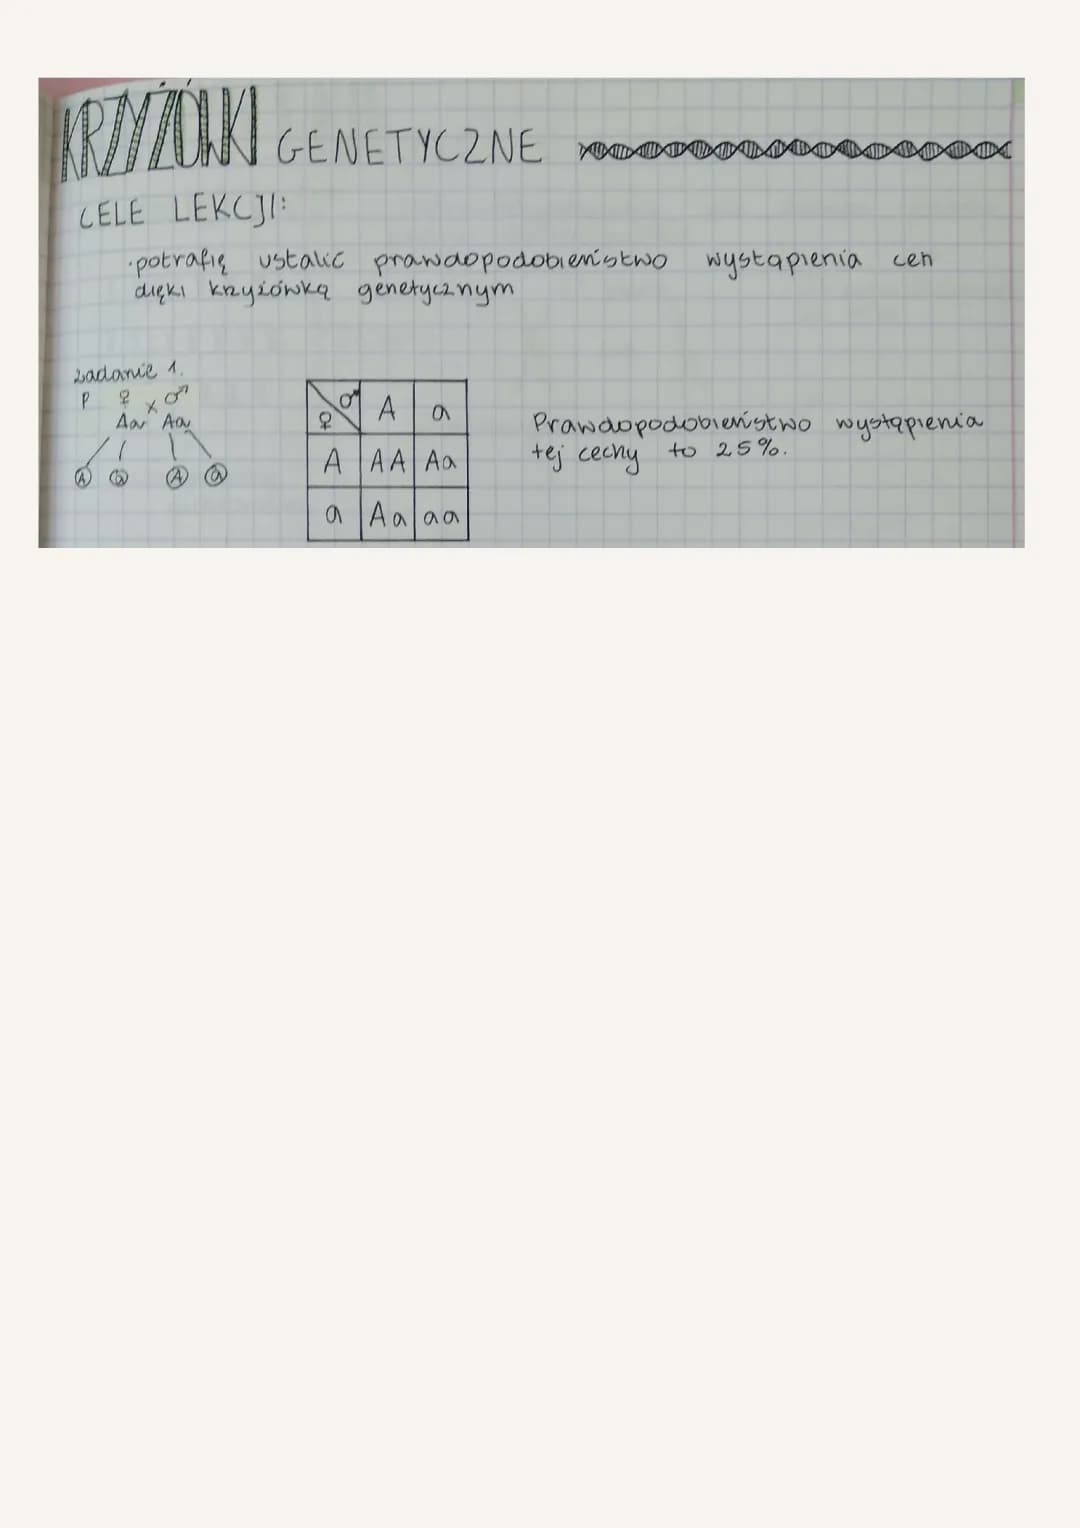 KRZYŻÓWKI GENETYCZNE
CELE LEKCJI:
·potrafię ustalić prawdopodobieństwo wystąpienia cen
dięki krzyżówką genetycznym
zadanie 1.
P ♀ x ♂
Aa Aa
A a A a
♀ ♂ A a
A AA Aa
a Aa aa
Prawdopodobieństwo wystąpienia
tej cechy to 25%.